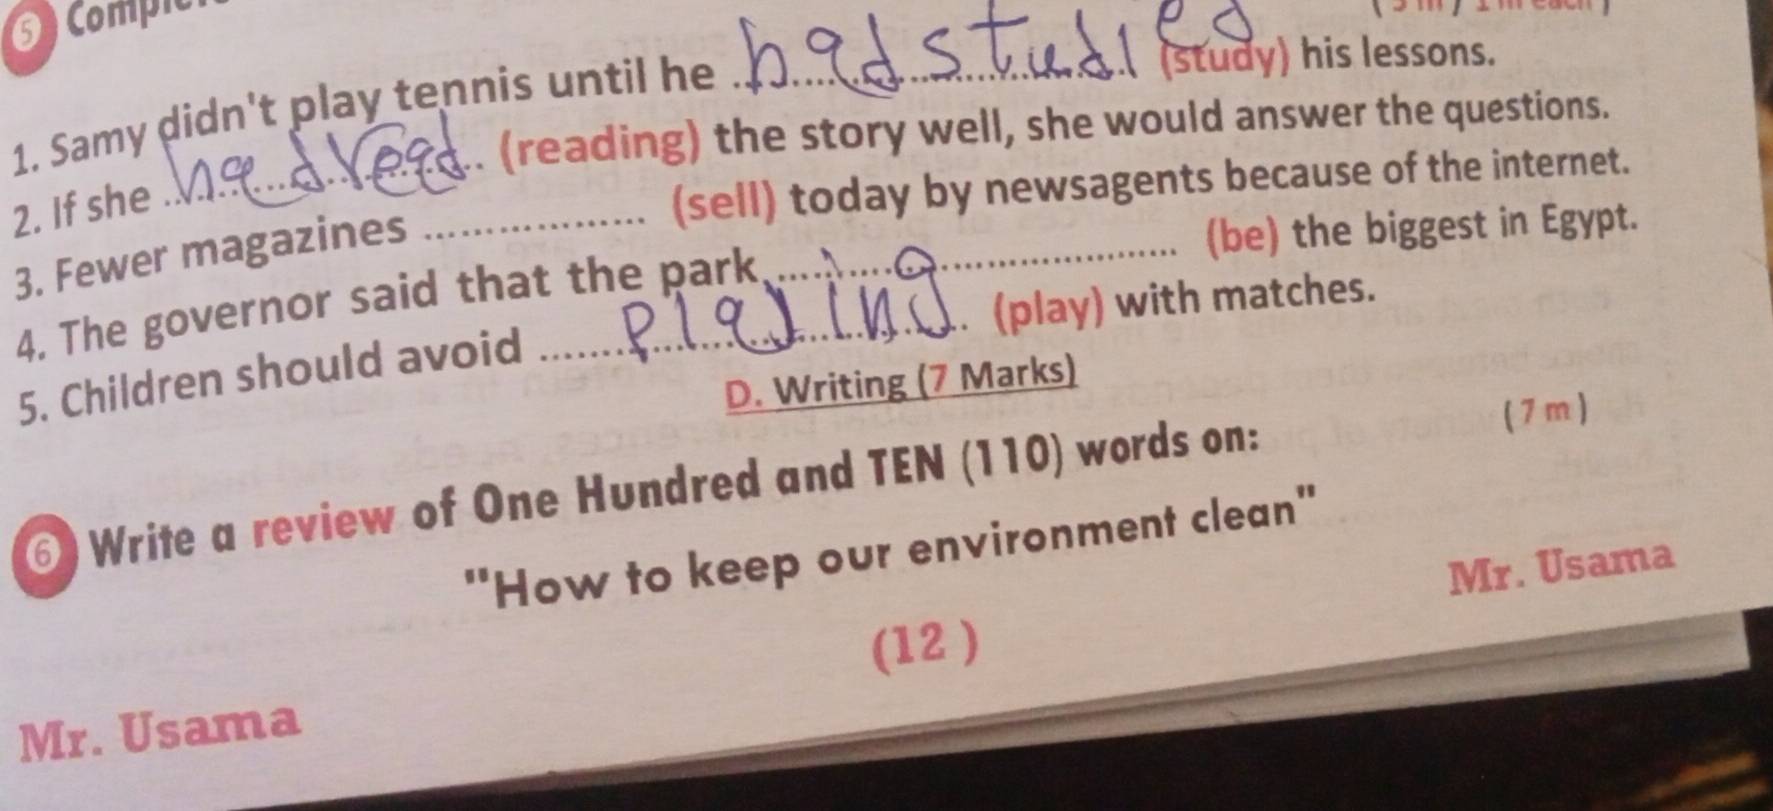 5
1. Samy didn't play tennis until he had studied (study) his lessons.
2. If she had read (reading) the story well, she would answer the questions.
3. Fewer magazines .................. (sell) today by newsagents because of the internet.
4. The governor said that the park .................. (be) the biggest in Egypt.
5. Children should avoid plaiing (play) with matches.
D. Writing (7 Marks)
6 Write a review of One Hundred and TEN (110) words on: (7 m)
"How to keep our environment clean"
Mr. Usama
(12)
Mr. Usama